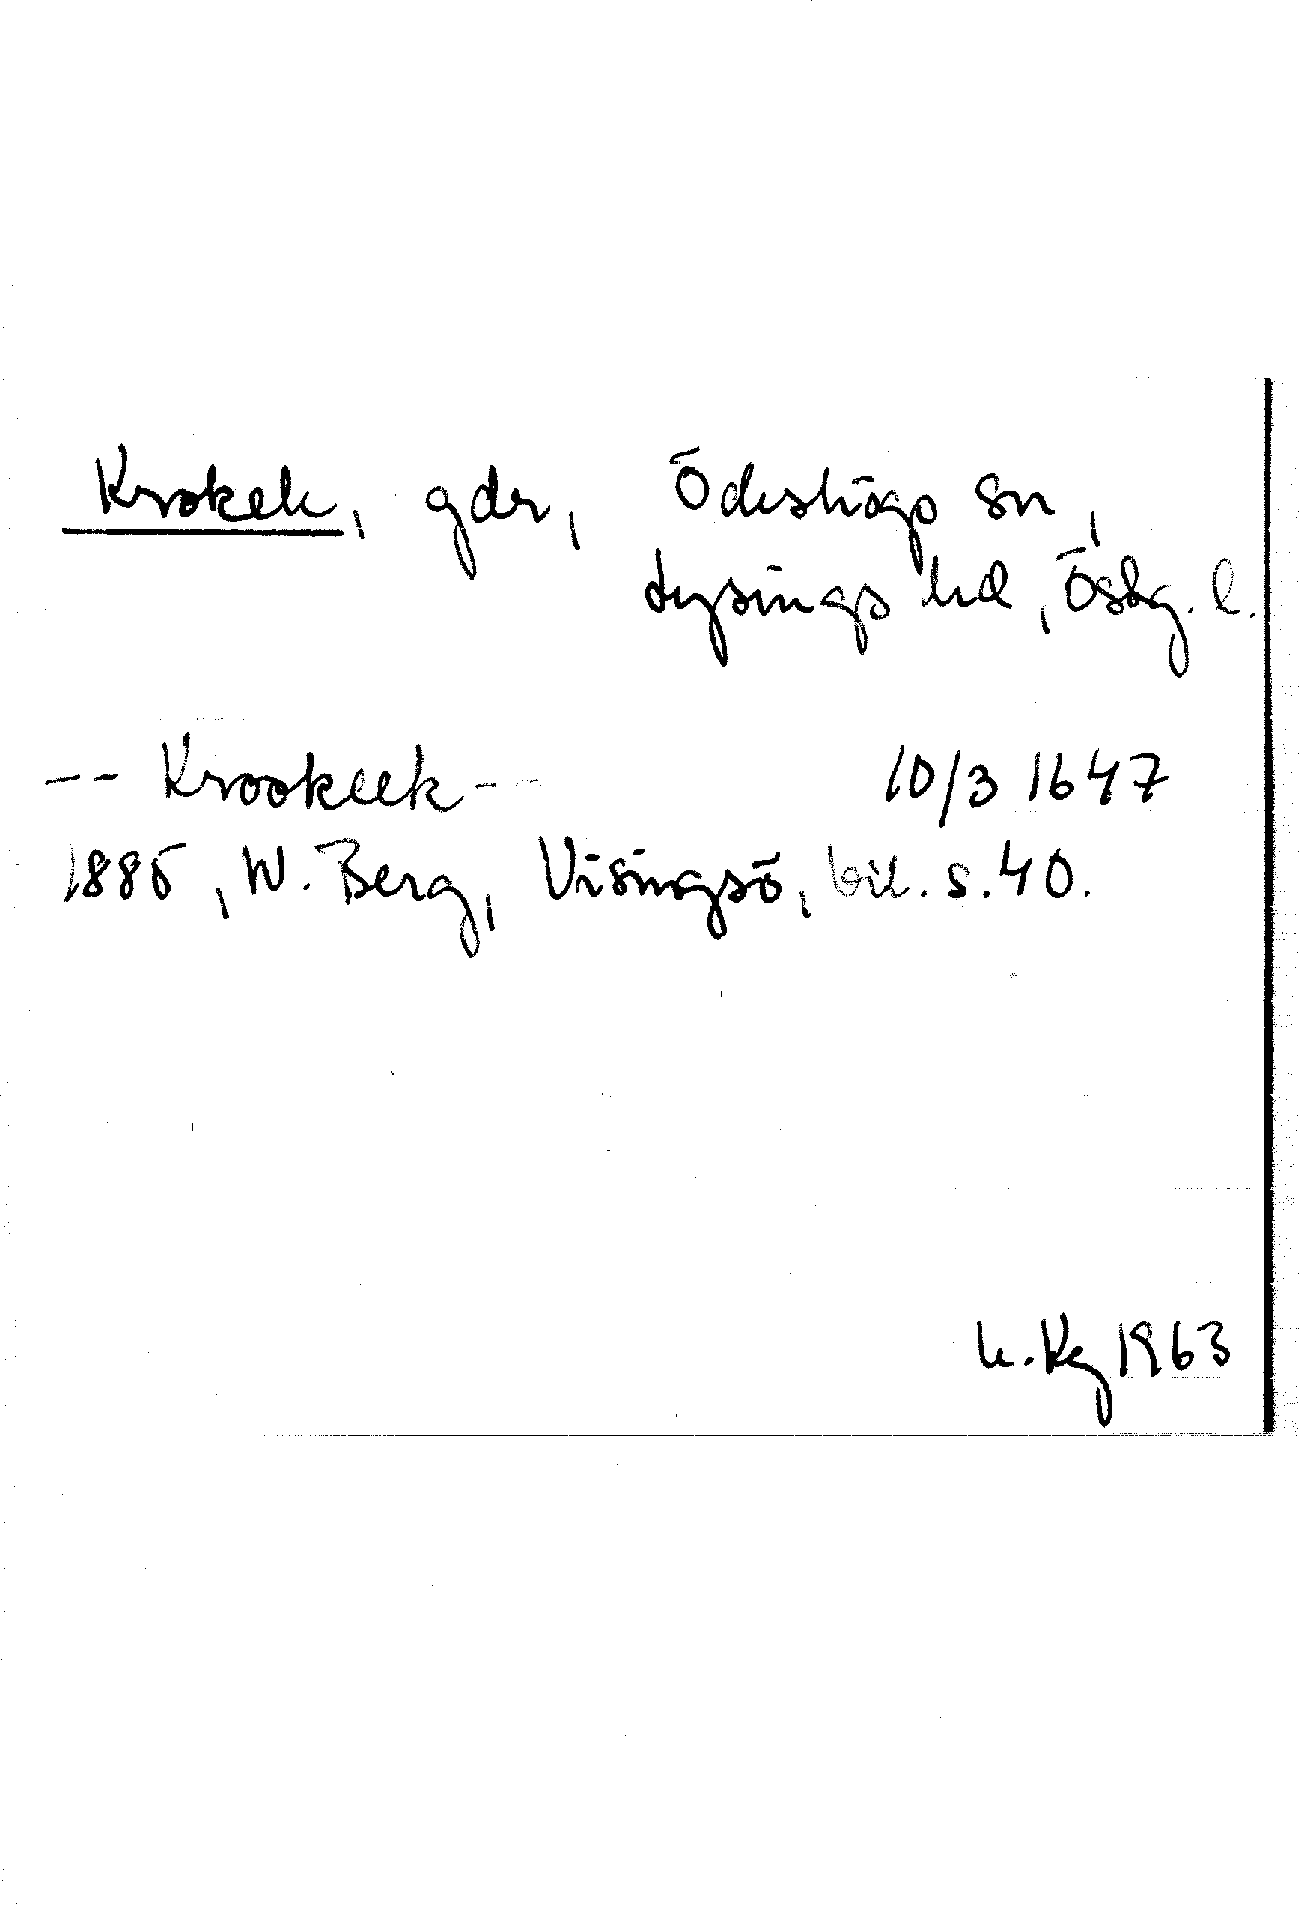 Krokek, gdr, Ödeshögs sn,
Lysings hd, Östg. l.
-- Krookeek -- 10/3 1647
1885, W. Berg, Visingsö, bil. s. 40.
K. Kg 1963